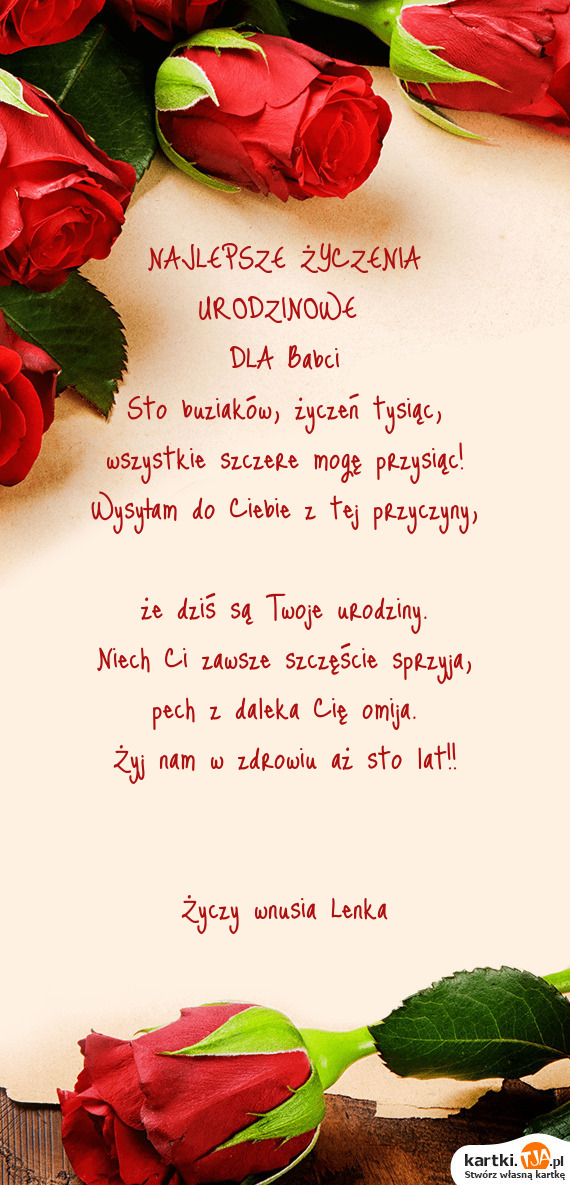 NAJLEPSZE ŻYCZENIA
URODZINOWE
DLA Babci
Sto buziaków, życzeń tysiąc,
wszystkie szczere mogę przysiąc!
Wysyłam do Ciebie z tej przyczyny,
że dziś są Twoje urodziny.
Niech Ci zawsze szczęście sprzyja,
pech z daleka Cię omija.
Żyj nam w zdrowiu aż sto lat!!
Życzy wnusia Lenka
kartki.TJA.pl
Stwórz własną kartkę